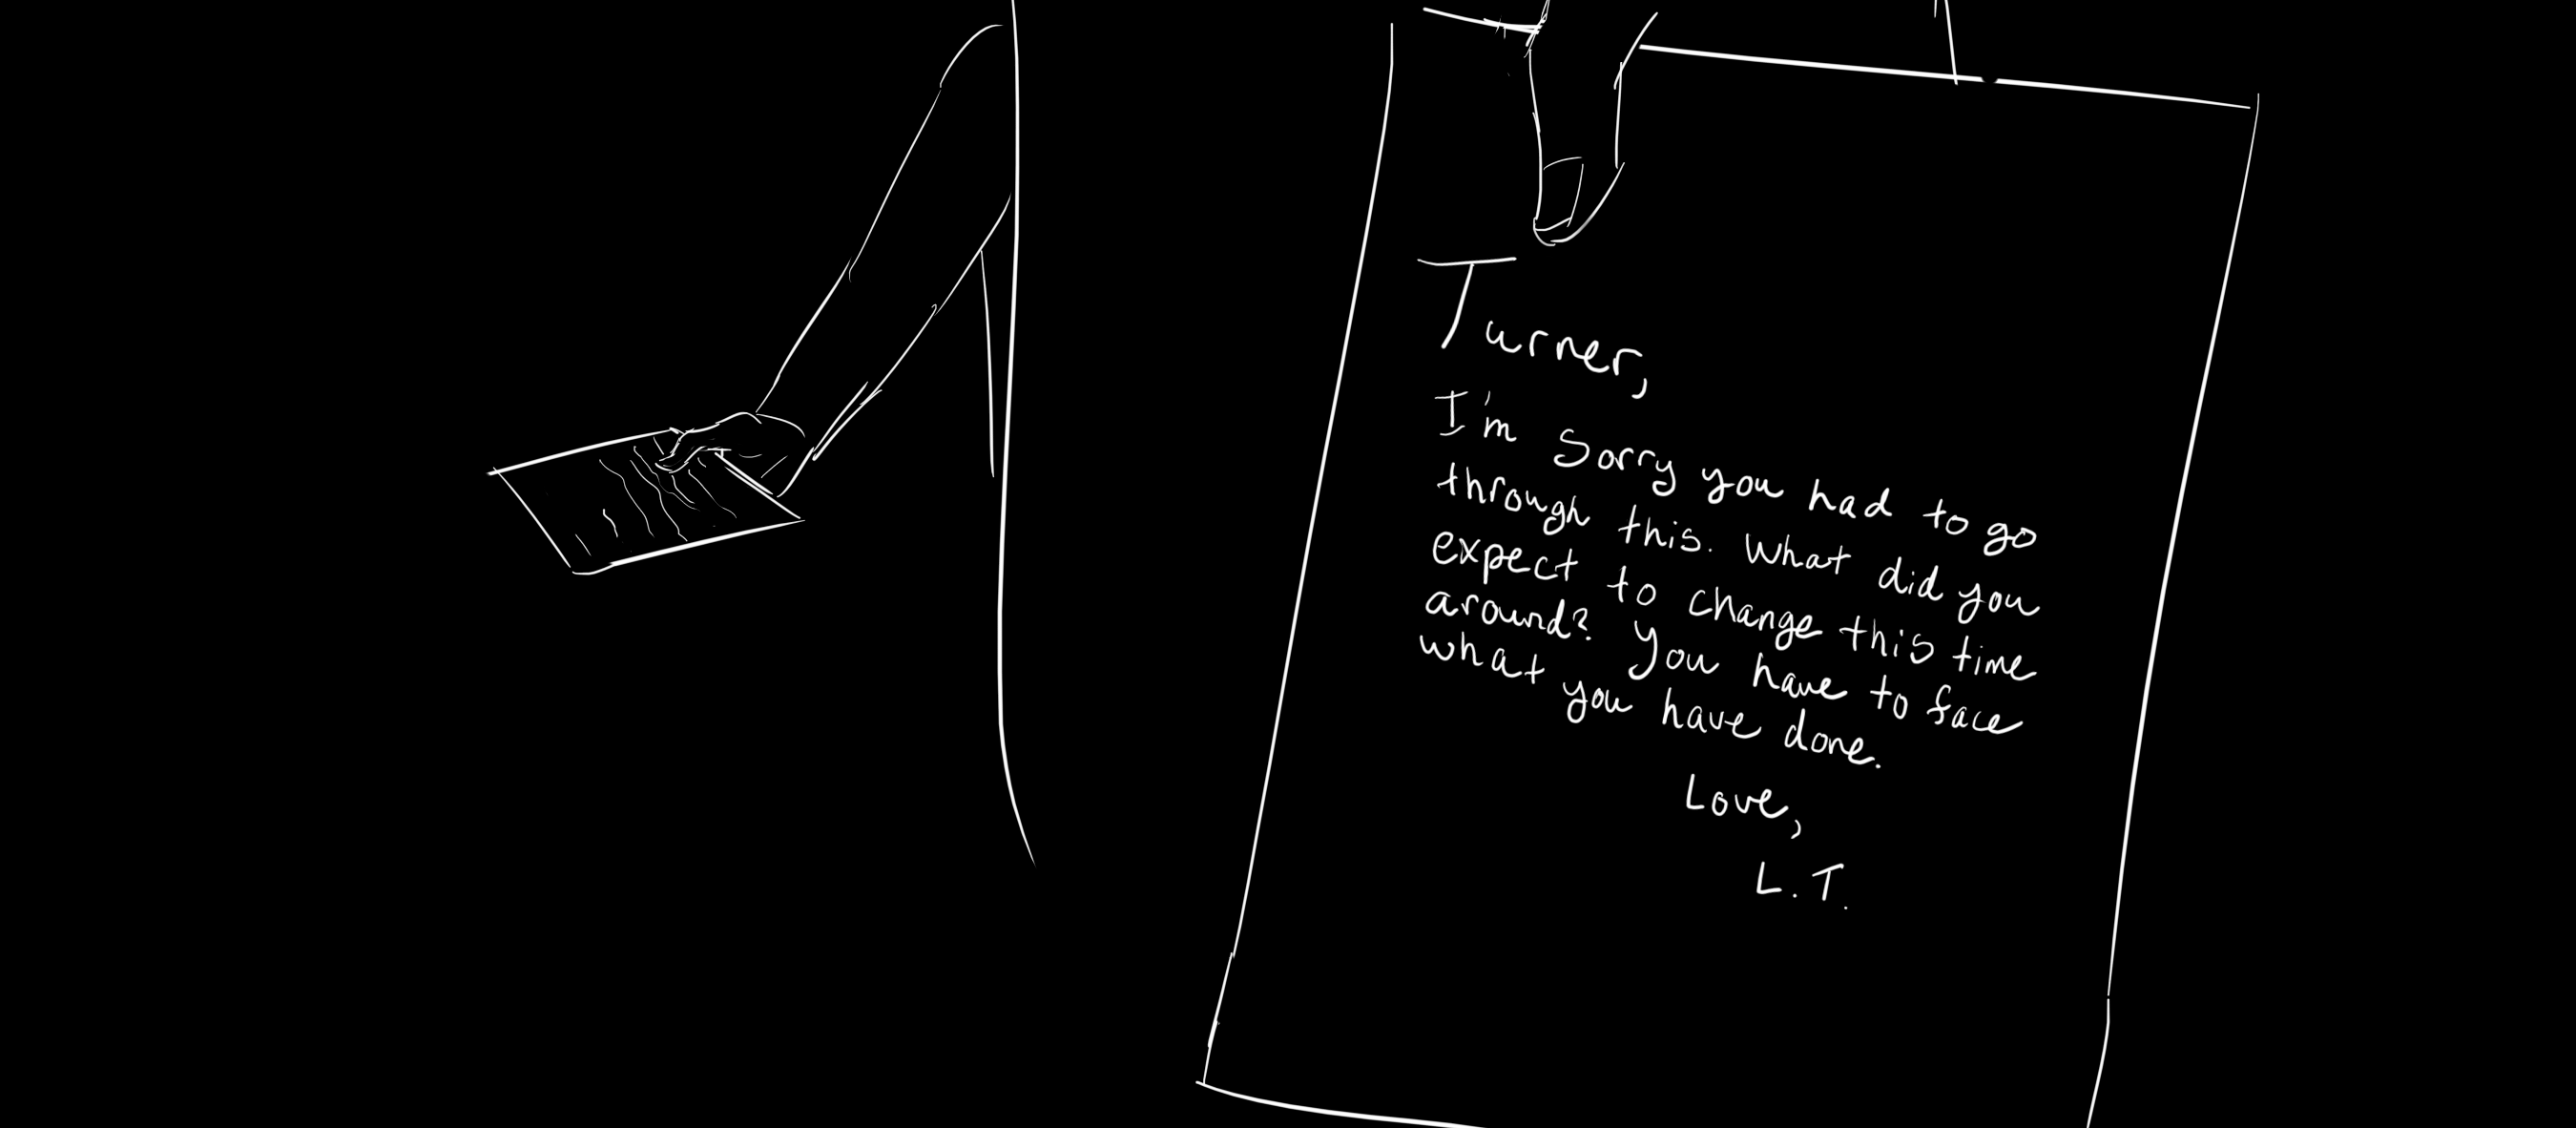 Turner,
I'm sorry you had to go
through this. What did you
expect to change this time
around? You have to face
what you have done.
Love,
L.T.